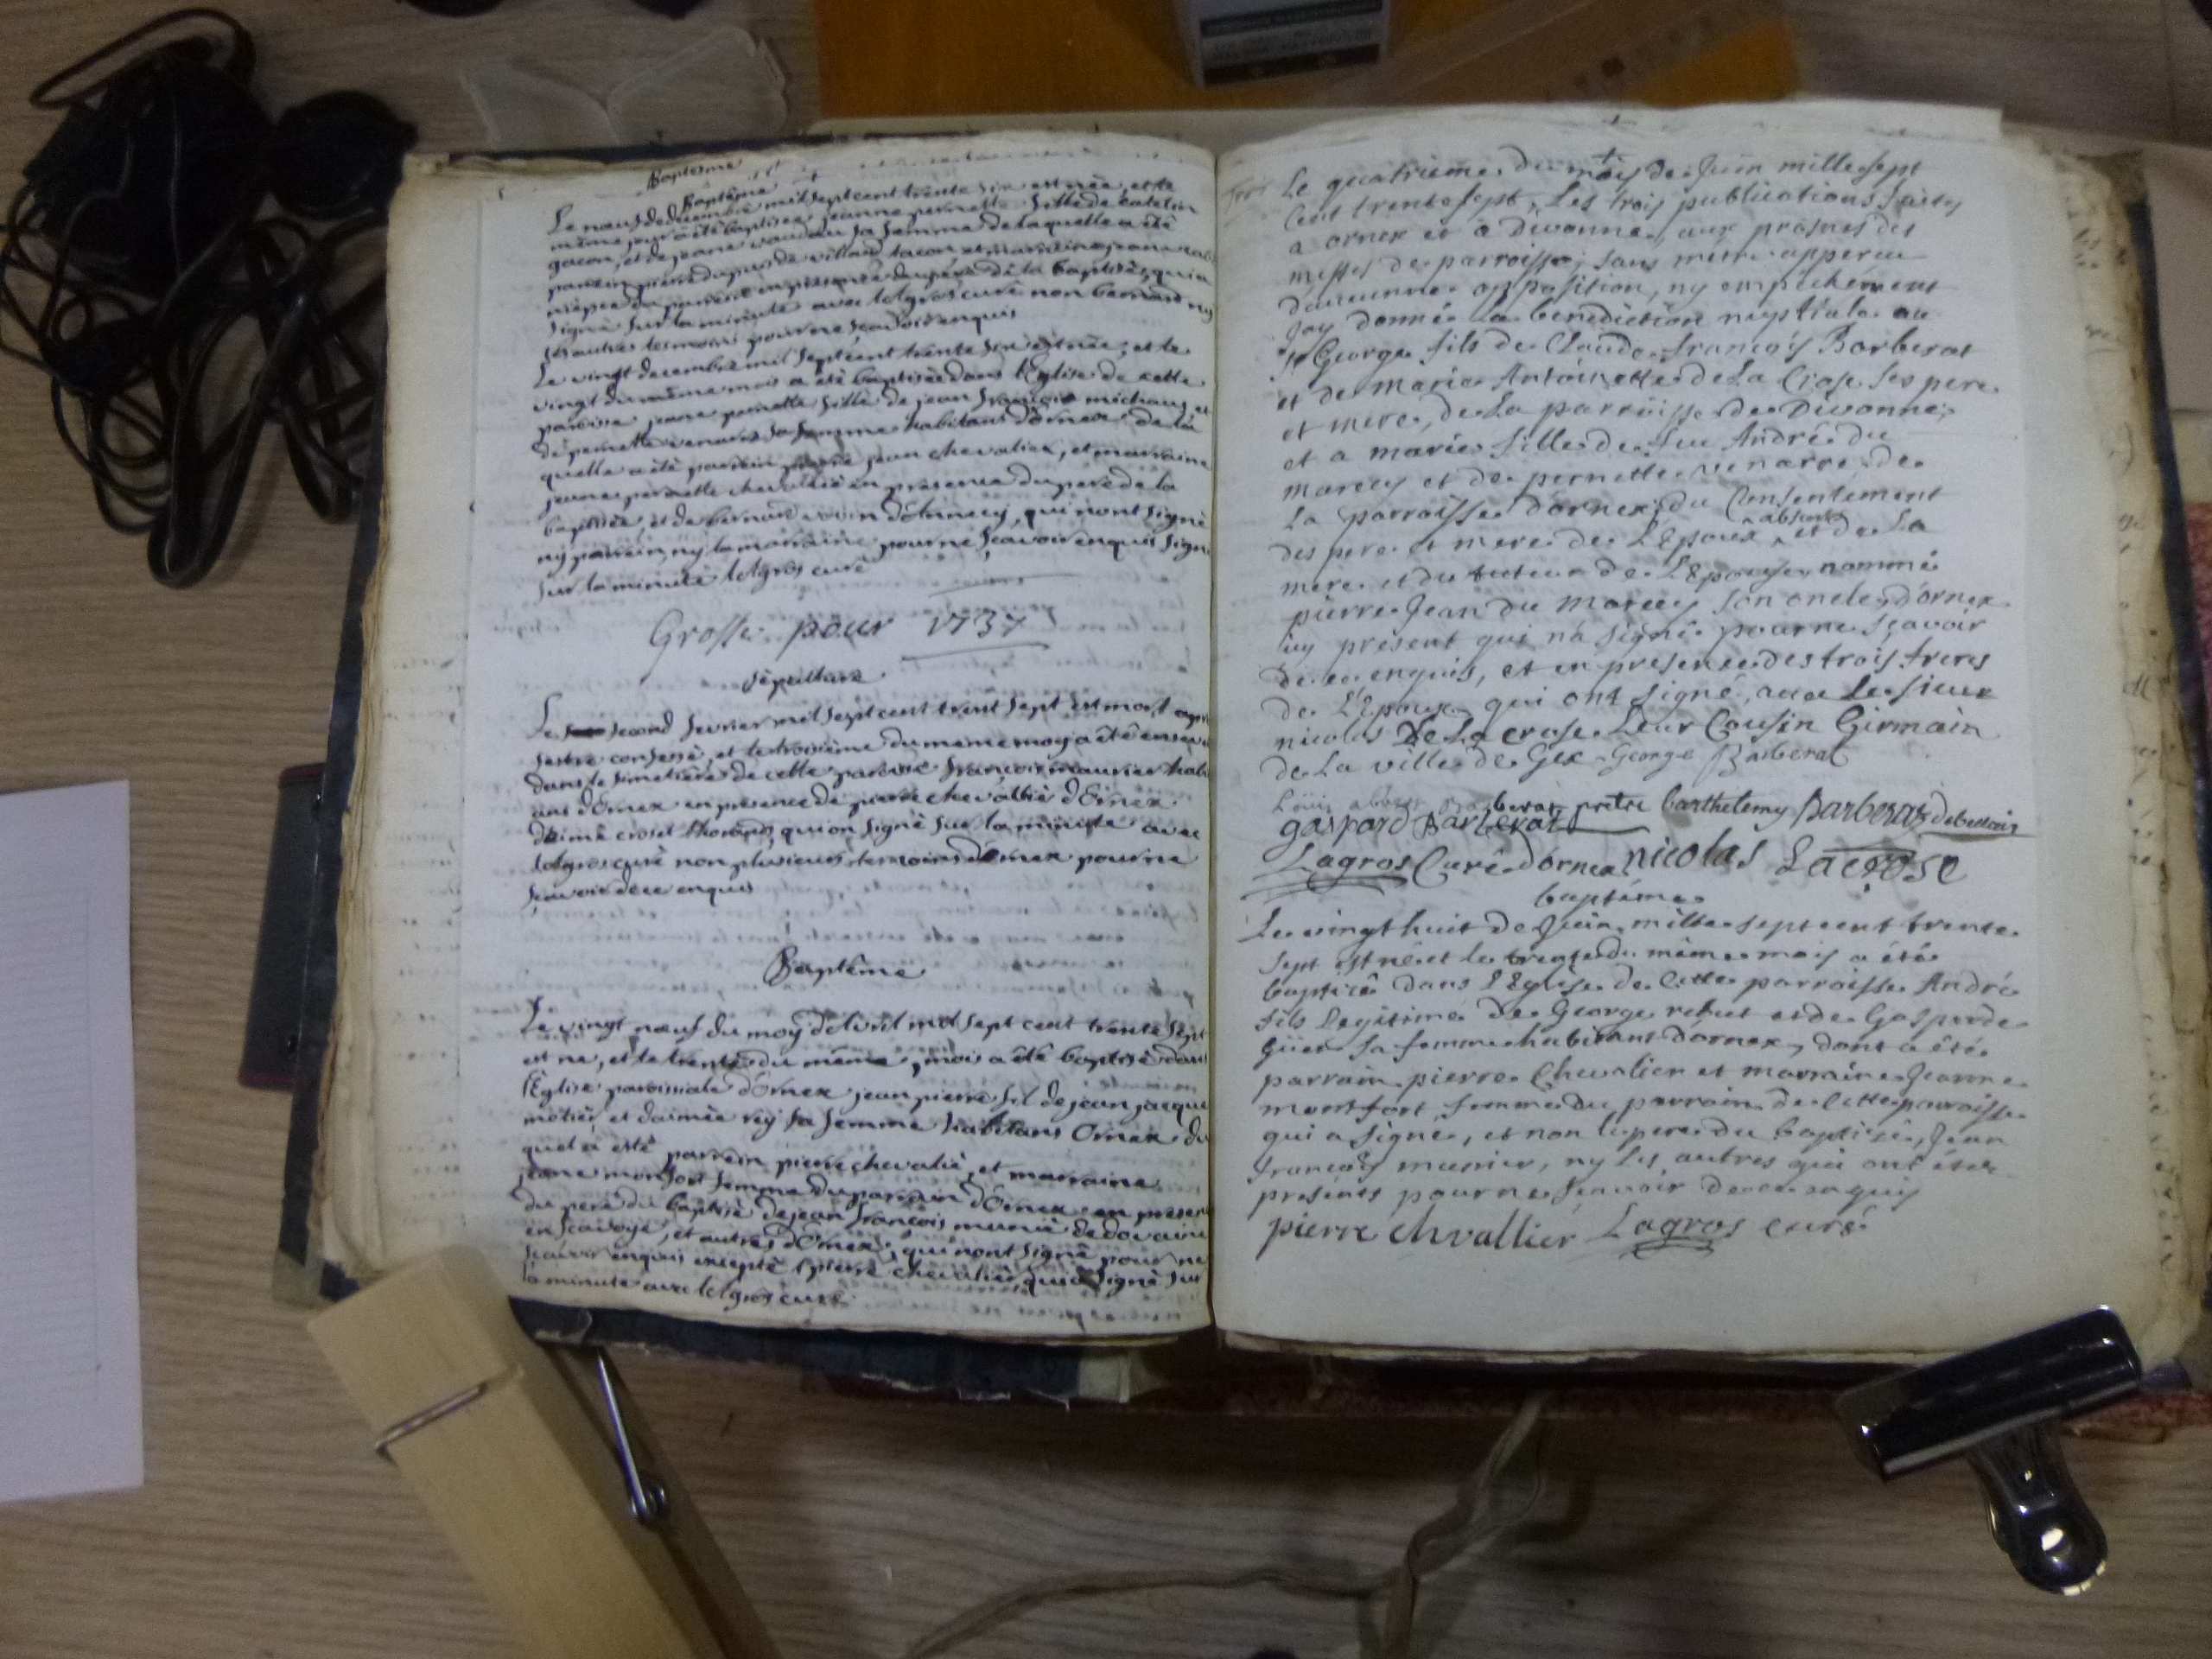 Baptême
Baptême
Le neuf de decembre mil sept cent trente six est née, et le
même jour a été baptisée jeanne pernette fille de
gacon, et de jeane sa femme de laquelle a été
parrein pierre dupuis de villard tacon et marraine jeanne
niepce du parrein en présence du père de la baptisée, qui a
signé sur la minute avec lelgros curé non bernard ny
les autres temoins pour ne sçavoir enquis
Le vingt decembre mil sept cent trente six est née, et le
vingt du même mois a été baptisée dans l'Eglise de cette
paroisse jeane pernette fille de jean françois michaux, et
de pernette sa femme habitans d'ornex de la
quelle a été parrein pierre jean chevalier, et marraine
jeane pernette chevallié en presence du pere de la
baptisée, et de bernard d'Annecy, qui n'ont signé
ny parrein, ny la marraine pour ne sçavoir enquis signé
sur la minute lelgros curé
Grosse pour 1737
sépulture
Le second fevrier mil sept cent trent sept est mort apres
s'estre confessé, et le troisième du meme moy a été enseve
dans le simetière de cette paroisse françois maurier habi
ans d'Ornex en presence de pierre chevallié d'Ornex
d'aimé croset thorand, qui on signé sur la minute avec
lelgros curé non plusieurs temoins d'Ornex pour ne
sçavoir de ce enquis
Baptême
Le vingt neuf du moy d'Avril mil sept cent trente sept
est ne, et le trente du même mois a été baptisé dans
l'Eglise paroissiale d'Ornex jean pierre fil de jean jacque
motier, et d'aimée rey sa femme habitans Ornex du
quel a esté parrein pierre chevalié, et marraine
jeane monfort femme du parrain d'Ornex en presen
du pere du baptisé de jean françois munié de dovaine
en scavoye, et autres d'Ornex, qui n'ont signé pour ne
sçavoir enquis excepté pierre chevalier qui a signé sur
la minute avec lelgros curé
Le quatrieme du mois de Juin mille sept
Cent trente sept, Les trois publications faites
a ornex et a Divonne, aux prosnes des
messes de parroisse, sans m'etre apperceu
d'aucunne opposition, ny empêchement
J'ay donné la benediction nuptiale au
Sr George fils de Claude François Barberat
et de Marie Antoinette de La Crose ses pere
et mere, de La parroisse de Divonne,
et a marie fille de feu André du
marcey et de pernette venarre, de
La parroisse d'ornex, du Consentement
des pere et mere de L'Epoux absents et de La
mere et du tuteur de L'Epouse, nommé
pierre Jean du Marcey son oncle, d'ornex
icy present qui n'a signé pour ne sçavoir
de ce enquis, et en presence des trois freres
de L'Epoux qui ont signé, avec Le sieur
nicolas De La crose Leur Cousin Germain
de La ville de Gex George Barberat
Barberat prêtre barthelemy Barberat
gaspard Barberat
Lagros Curé d'ornex nicolas Lacrose
baptême
Le vingt huit de Juin mille sept cent trente
sept est né et le trente du même mois a été
baptisé dans l'Eglise de Cette parroisse André
fils Legitime de George et de Gasparde
sa femme habitant d'ornex, dont a été
parrain pierre Chevalier et marraine Jeanne
montfort femme du parrain de cette parroisse
qui a signé, et non le pere du baptisé, Jean
François munier, ny les autres qui ont étez
présents pour ne sçavoir de ce enquis
pierre chvallier Lagros curé